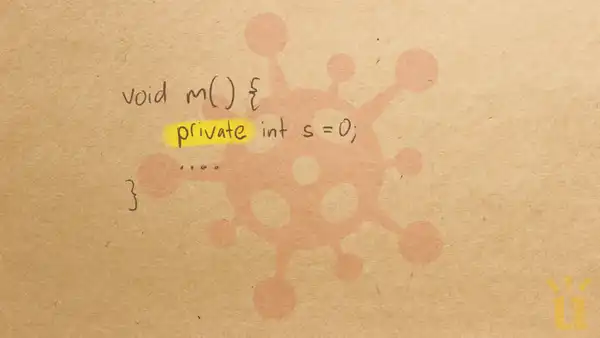 void m() {
private int s = 0;
....
}